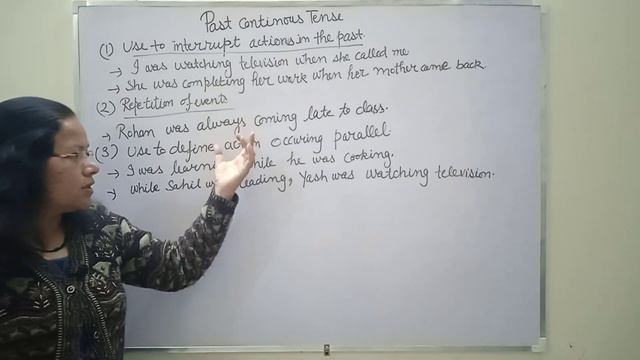 Past Continous Tense
(1) Use to interrupt actions in the past.
→ I was watching television when she called me
→ She was completing her work when her mother came back.
(2) Repetition of events
→ Rohan was always coming late to class.
(3) Use to define occuring parallel
→ I was he was cooking.
→ While Sahil Yash was watching television.